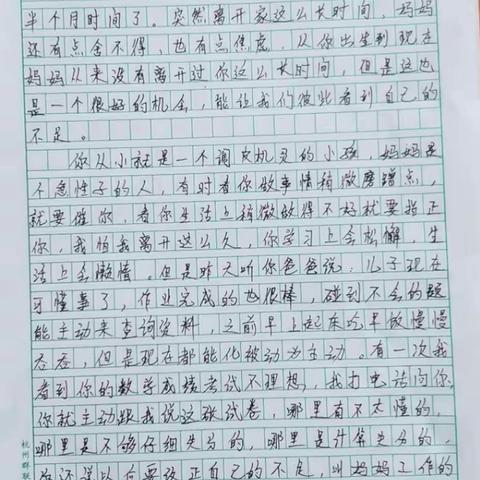 半个月时间了。突然离开家这么长时间，妈妈
还有点舍不得，也有点焦虑，从你出生到现在
妈妈从来没有离开过你这么长时间，但是这也
是一个很好的机会，能让我们彼此看到自己的
不足。
你从小就是一个调皮机灵的小孩，妈妈是
个急性子的人，有时看你做事情稍微磨蹭点，
就要催你，看你生活上稍微做得不好就要指正
你，我怕我离开这么久，你学习上会松懈，生
活上会懒惰。但是昨天听你爸爸说：儿子现在
可懂事了，作业完成的也很棒，碰到不会的题
能主动来查询资料，之前早上起来吃早饭慢慢
吞吞，但是现在都能化被动为主动。有一次我
看到你的数学成绩考试不理想，我打电话问你，
你就主动跟我说这张试卷，哪里有不太懂的，
哪里是不够仔细失分的，哪里是计算失分的，
你还说以后要改正自己的不足，叫妈妈工作的
杭州群联